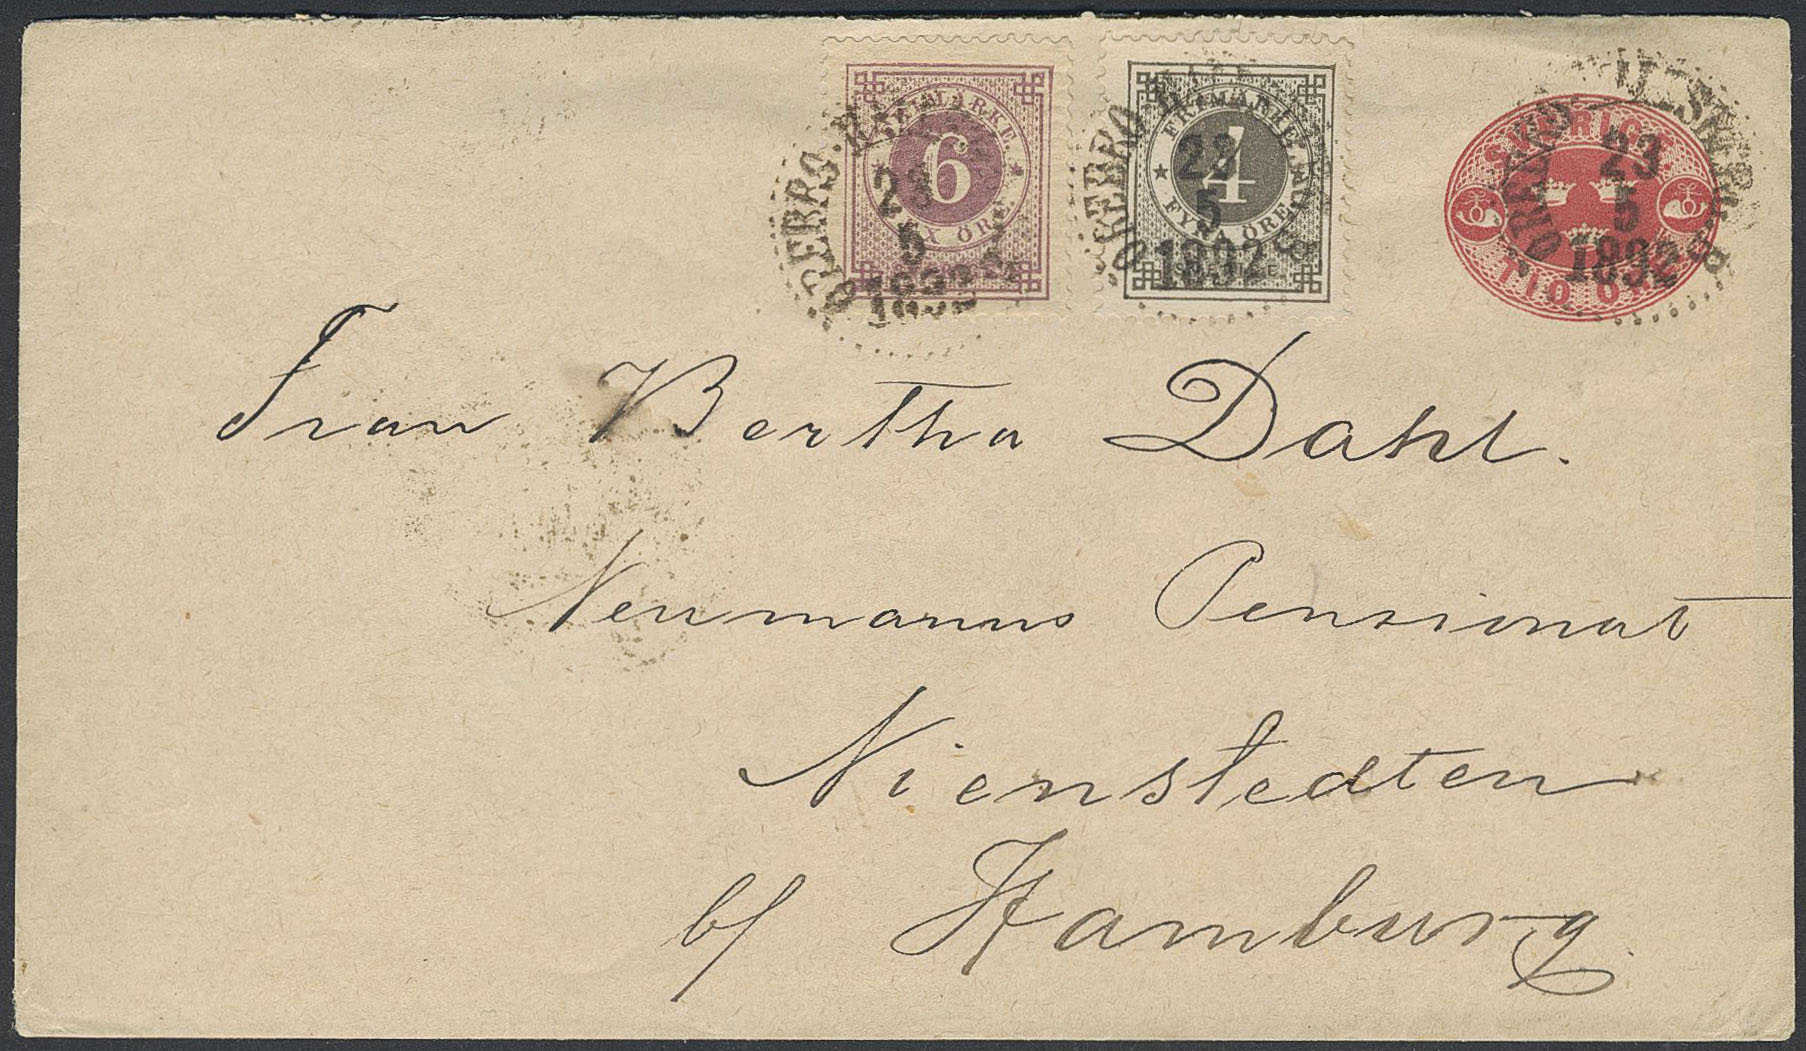 FRIMÄRKE
6
SEX ÖRE
FRIMÄRKE
4
FYRA ÖRE
SVERIGE
SVERIGE
TIO ÖRE
ÖREBRO
23
5
1892
ÖREBRO
23
5
1892
ÖREBRO
23
5
1892
Frau Bertha Dahl.
Neumanns Pensionat
Nienstedten
b/ Hamburg.